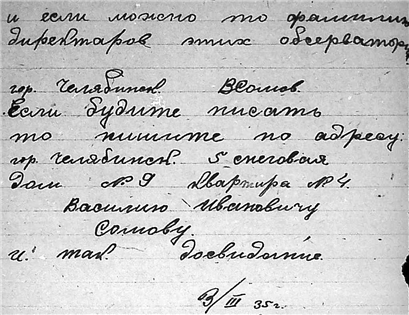 и если можно то фамилии
директаров этих обсерватор
гор. Челябинск. ВСомов.
Если будите писать
то пишите по адресу:
гор. Челябинск. 5 снеговая
Дом № 9 Квартира № 4.
Василию Ивановичу
Сомову.
и так досвидание.
3/III 35 г.